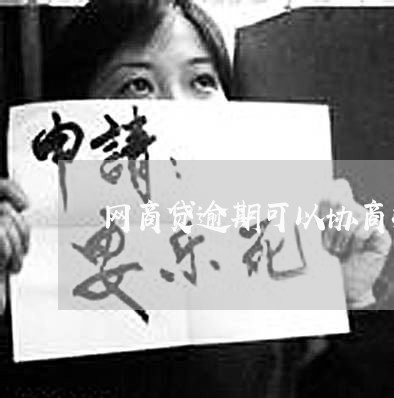 申請：
网商贷逾期可以协商
安乐死